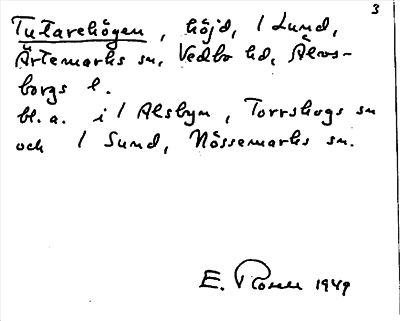 3
Tutarehögen, höjd, 1 Lund,
Ärtemarks sn, Vedbo hd, Älvs-
borgs l.
bl.a. i 1 Alsbyn, Torrskogs sn
och 1 Sund, Nössemarks sn.
E. Rosell 1949